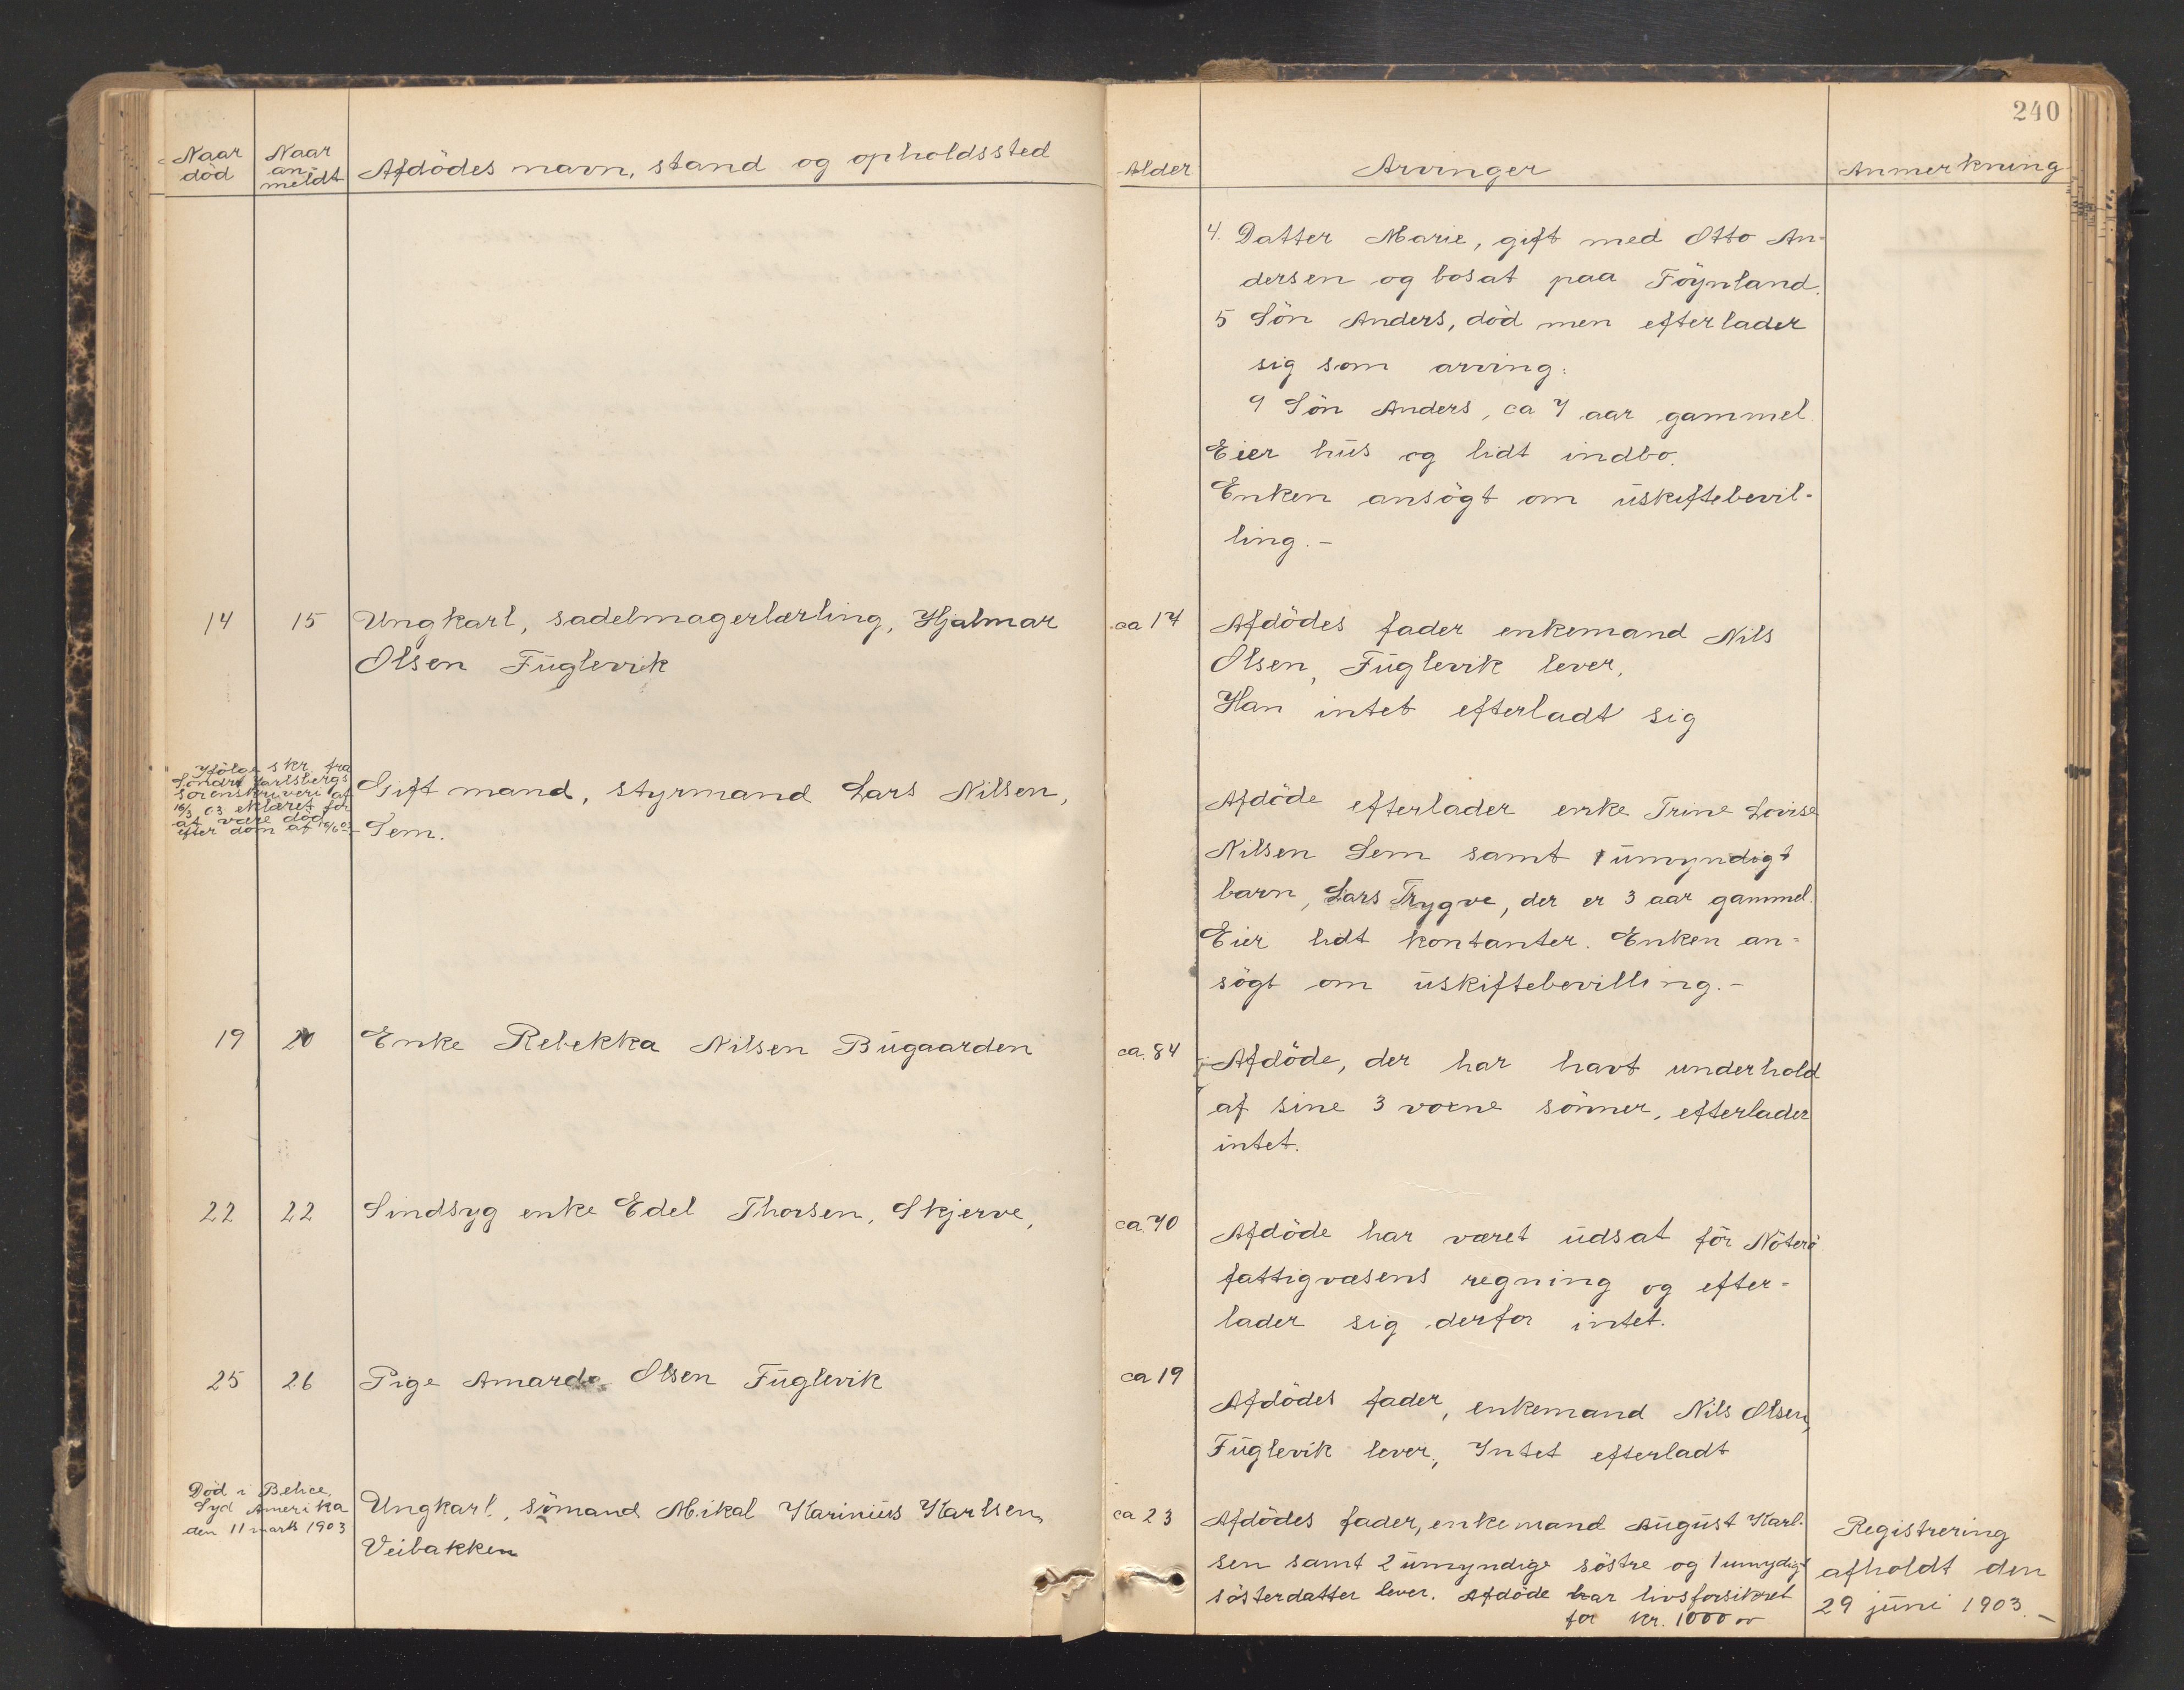 240
Naar død
Naar an-meldt
Afdödes navn, stand og opholdssted
Alder
Arvinger
Anmerkning
4. Datter Marie, gift med Otto An-
dersen og bosat paa Föynland.
5 Sön Anders, död men efterlader
sig som arving:
9 Sön Anders, ca 7 aar gammel
Eier hus og lidt indbo.
Enken ansögt om uskiftebevil-
ling.-
14 15 Ungkarl, sadelmagerlærling, Hjalmar
Olsen Fuglevik
ca 14
Afdödes fader enkemand Nils
Olsen, Fuglevik lever.
Han intet efterladt sig
Ifölge skr. fra
Söndre Jarlsbergs
sorenskriveri af
16/3 03 eklæret for
at være död
efter dom af 16/6 03
Gift mand, styrmand Lars Nilsen,
Sem.
Afdöde efterlader enke Trine Lovise
Nilsen Sem samt 1 umyndigt
barn, Lars Trygve, der er 3 aar gammel.
Eier lidt kontanter. Enken an-
sögt om uskiftebevilling.-
19 20 Enke Rebekka Nilsen Bugaarden
ca. 84
Afdöde, der har havt underhold
af sine 3 voxne sönner, efterlader
intet.
22 22 Sindsyg enke Edel Thorsen, Skjerve,
ca. 70
Afdöde har været udsat for Nöterö
fattigvæsens regning og efter-
lader sig derfor intet.
25 26 Pige Amarda Olsen Fuglevik
ca 19
Afdödes fader, enkemand Nils Olsen,
Fuglevik lever, Intet efterladt
Död i Belice,
Syd Amerika
den 11 marts 1903
Ungkarl, sömand Mikal Karinius Karlsen,
Veibakken
ca 23
Afdödes fader, enkemand August Karl-
sen samt 2 umyndige söstre og 1 umydig
sösterdatter lever. Afdöde har livsforsikret
for kr. 1000 00
Registrering
afholdt den
29 juni 1903.-